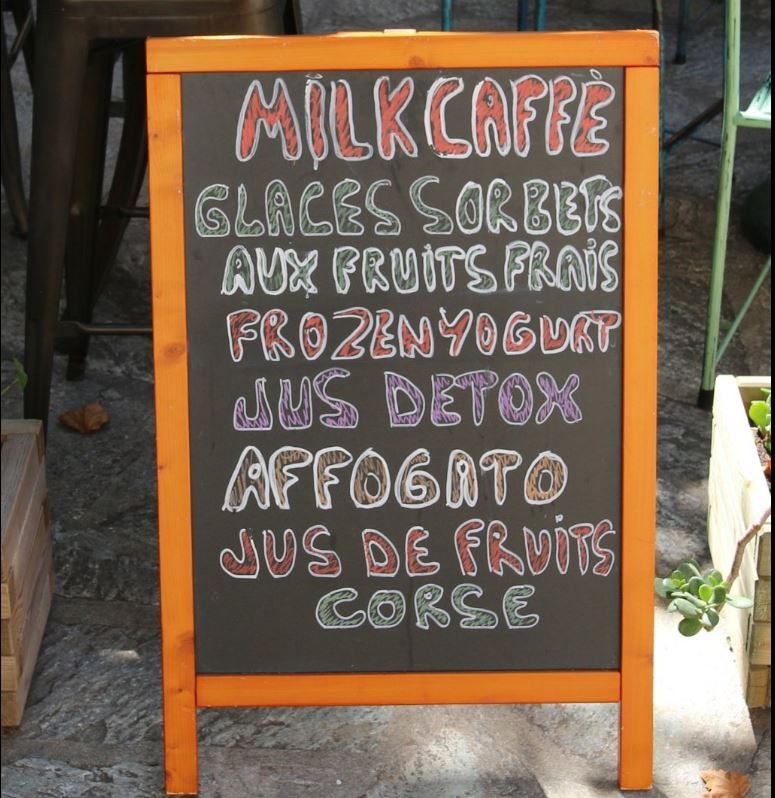 MILK CAFFÈ
GLACES SORBETS
AUX FRUITS FRAIS
FROZEN YOGURT
JUS DETOX
AFFOGATO
JUS DE FRUITS
CORSE